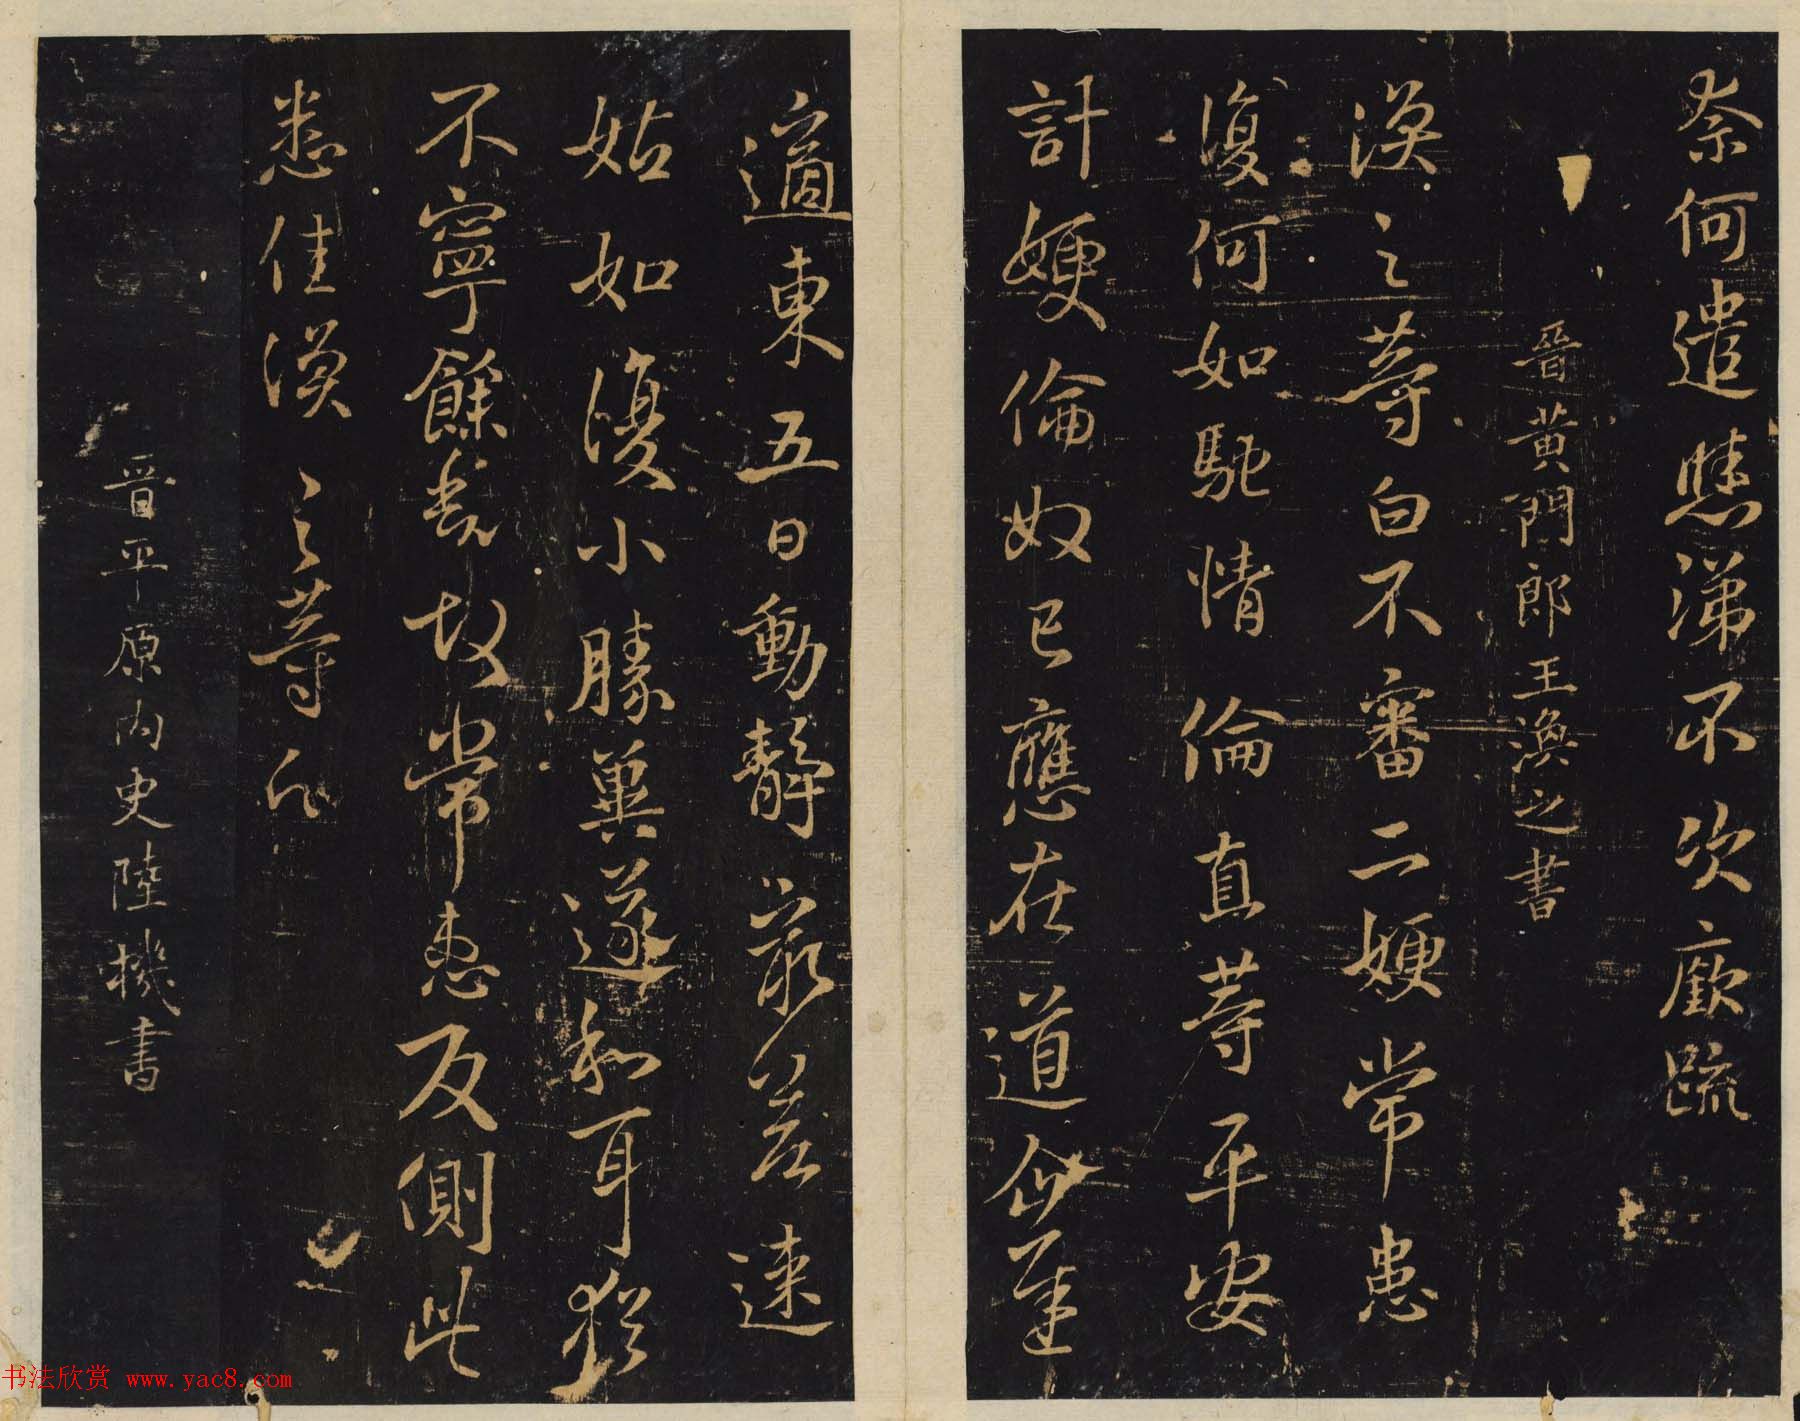 奈何遣悲涕不次廞疏
晉黃門郎王渙之書
渙之等白不審二嫂常患
復何如馳情倫直等平安
計嫂倫奴已應在道企遲
適東五日動靜最差速
姑如復小勝冀遂和耳猶
不寧餘悉故常患反側此
悉佳渙之等白
晉平原內史陸機書
书法欣赏 www.yac8.com